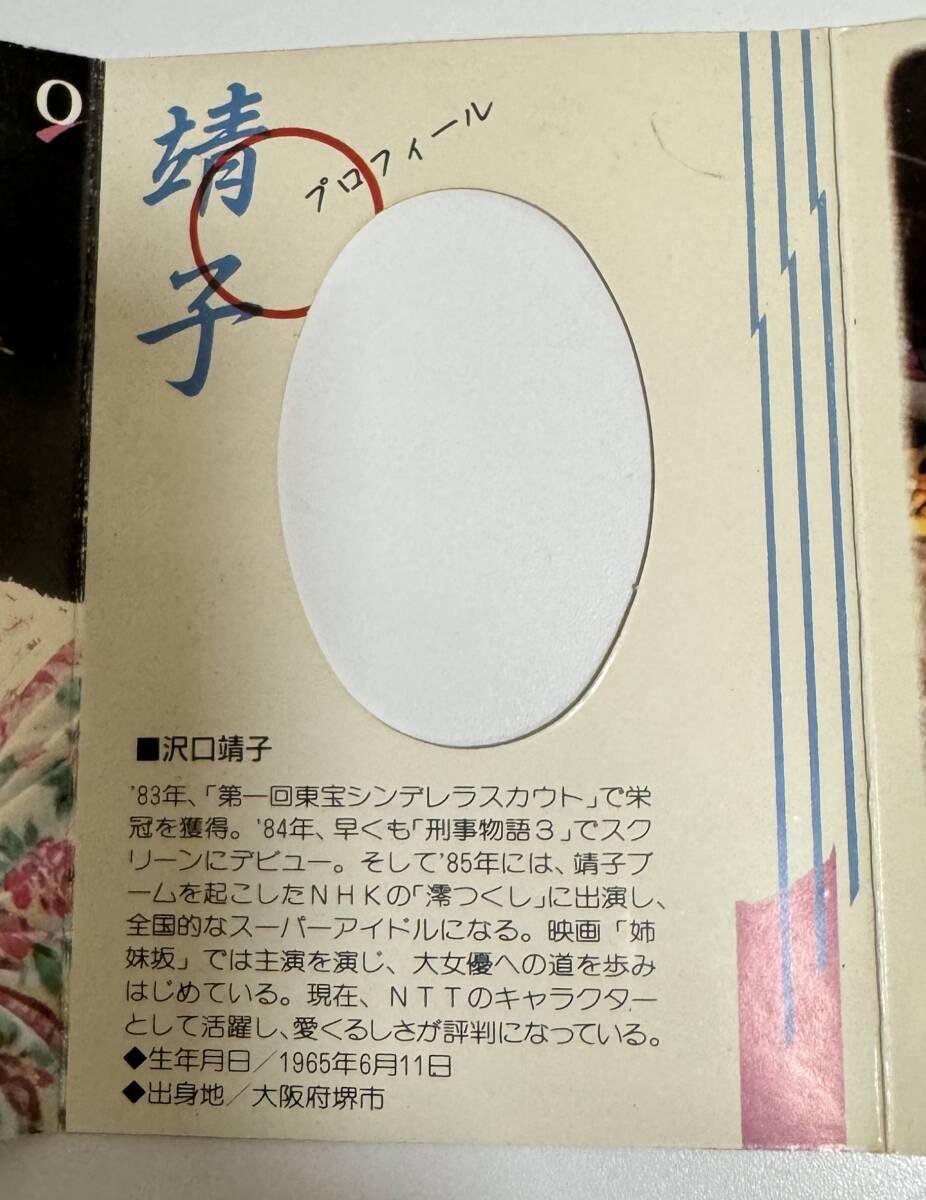 Q
靖子
プロフィール
■沢口靖子
'83年、「第一回東宝シンデレラスカウト」で栄
冠を獲得。'84年、早くも「刑事物語3」でスク
リーンにデビュー。そして'85年には、靖子ブ
ームを起こしたNHKの「澪つくし」に出演し、
全国的なスーパーアイドルになる。映画「姉
妹坂」では主演を演じ、大女優への道を歩み
はじめている。現在、NTTのキャラクター
として活躍し、愛くるしさが評判になっている。
◆生年月日/1965年6月11日
◆出身地/大阪府堺市